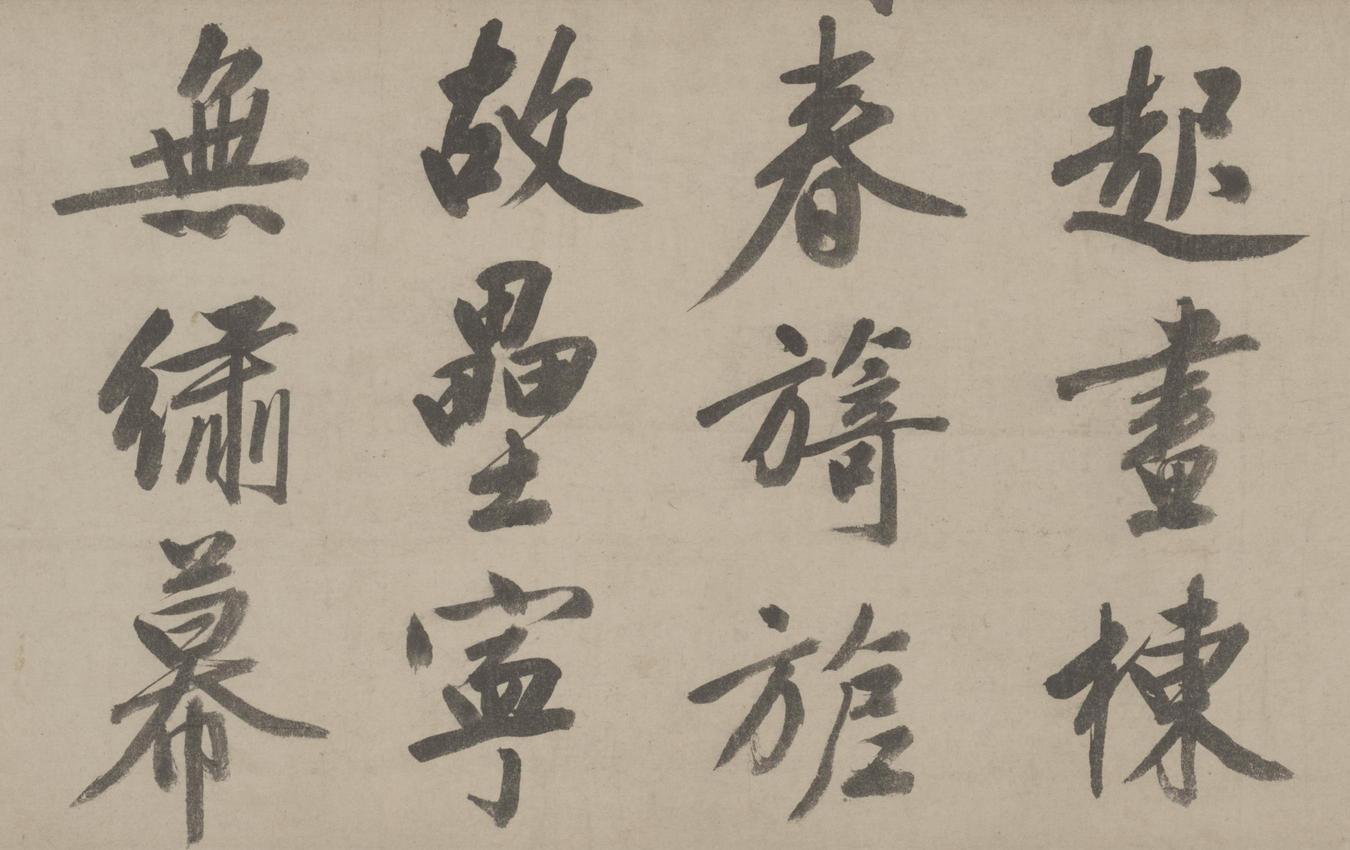 起畫棟
春旖旎
故壘寧
無繡幕